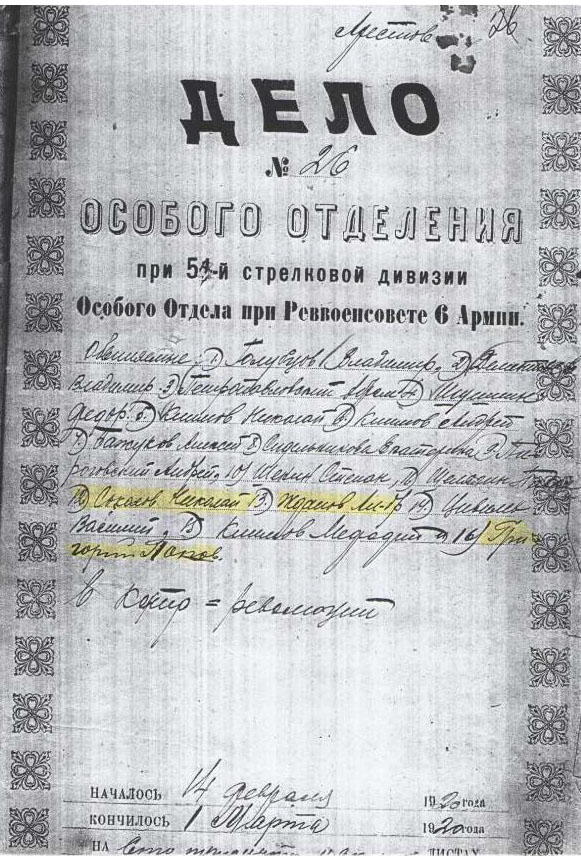 Арестов 26
ДЕЛО
№ 26
ОСОБОГО ОТДЕЛЕНИЯ
при 54-й стрелковой дивизии
Особого Отдела при Реввоенсовете 6 Армии.
Обвиняемые: 1) Голубцов Владимир, 2)
Владимир 3) Петропавловский 4)
Федор 5) Климов Николай 6) Климов Андрей
7) Бажуков Алексей 8) Сидельникова Екатерина 9) Пи-
роговский Андрей, 10) Шерин Степан, 11)
12) Соколов Николай 13) Жданов 14)
Василий, 15) Климов Мефадий и 16) Гри-
горий Попов.
в контр = революции
НАЧАЛОСЬ 14 февраля 1920 года
КОНЧИЛОСЬ 1 Марта 1920 года
НА Сто ЛИСТАХ